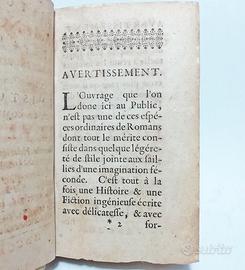 AVERTISSEMENT.
L'Ouvrage que l'on
done ici au Public,
n'est pas une de ces espé-
ces ordinaires de Romans
dont tout le mérite con-
siste dans quelque légére-
té de stile jointe aux sail-
lies d'une imagination fe-
conde. C'est tout à la
fois une Histoire & une
Fiction ingénieuse écrite
avec délicatesse, & avec
* 2 for-
subito